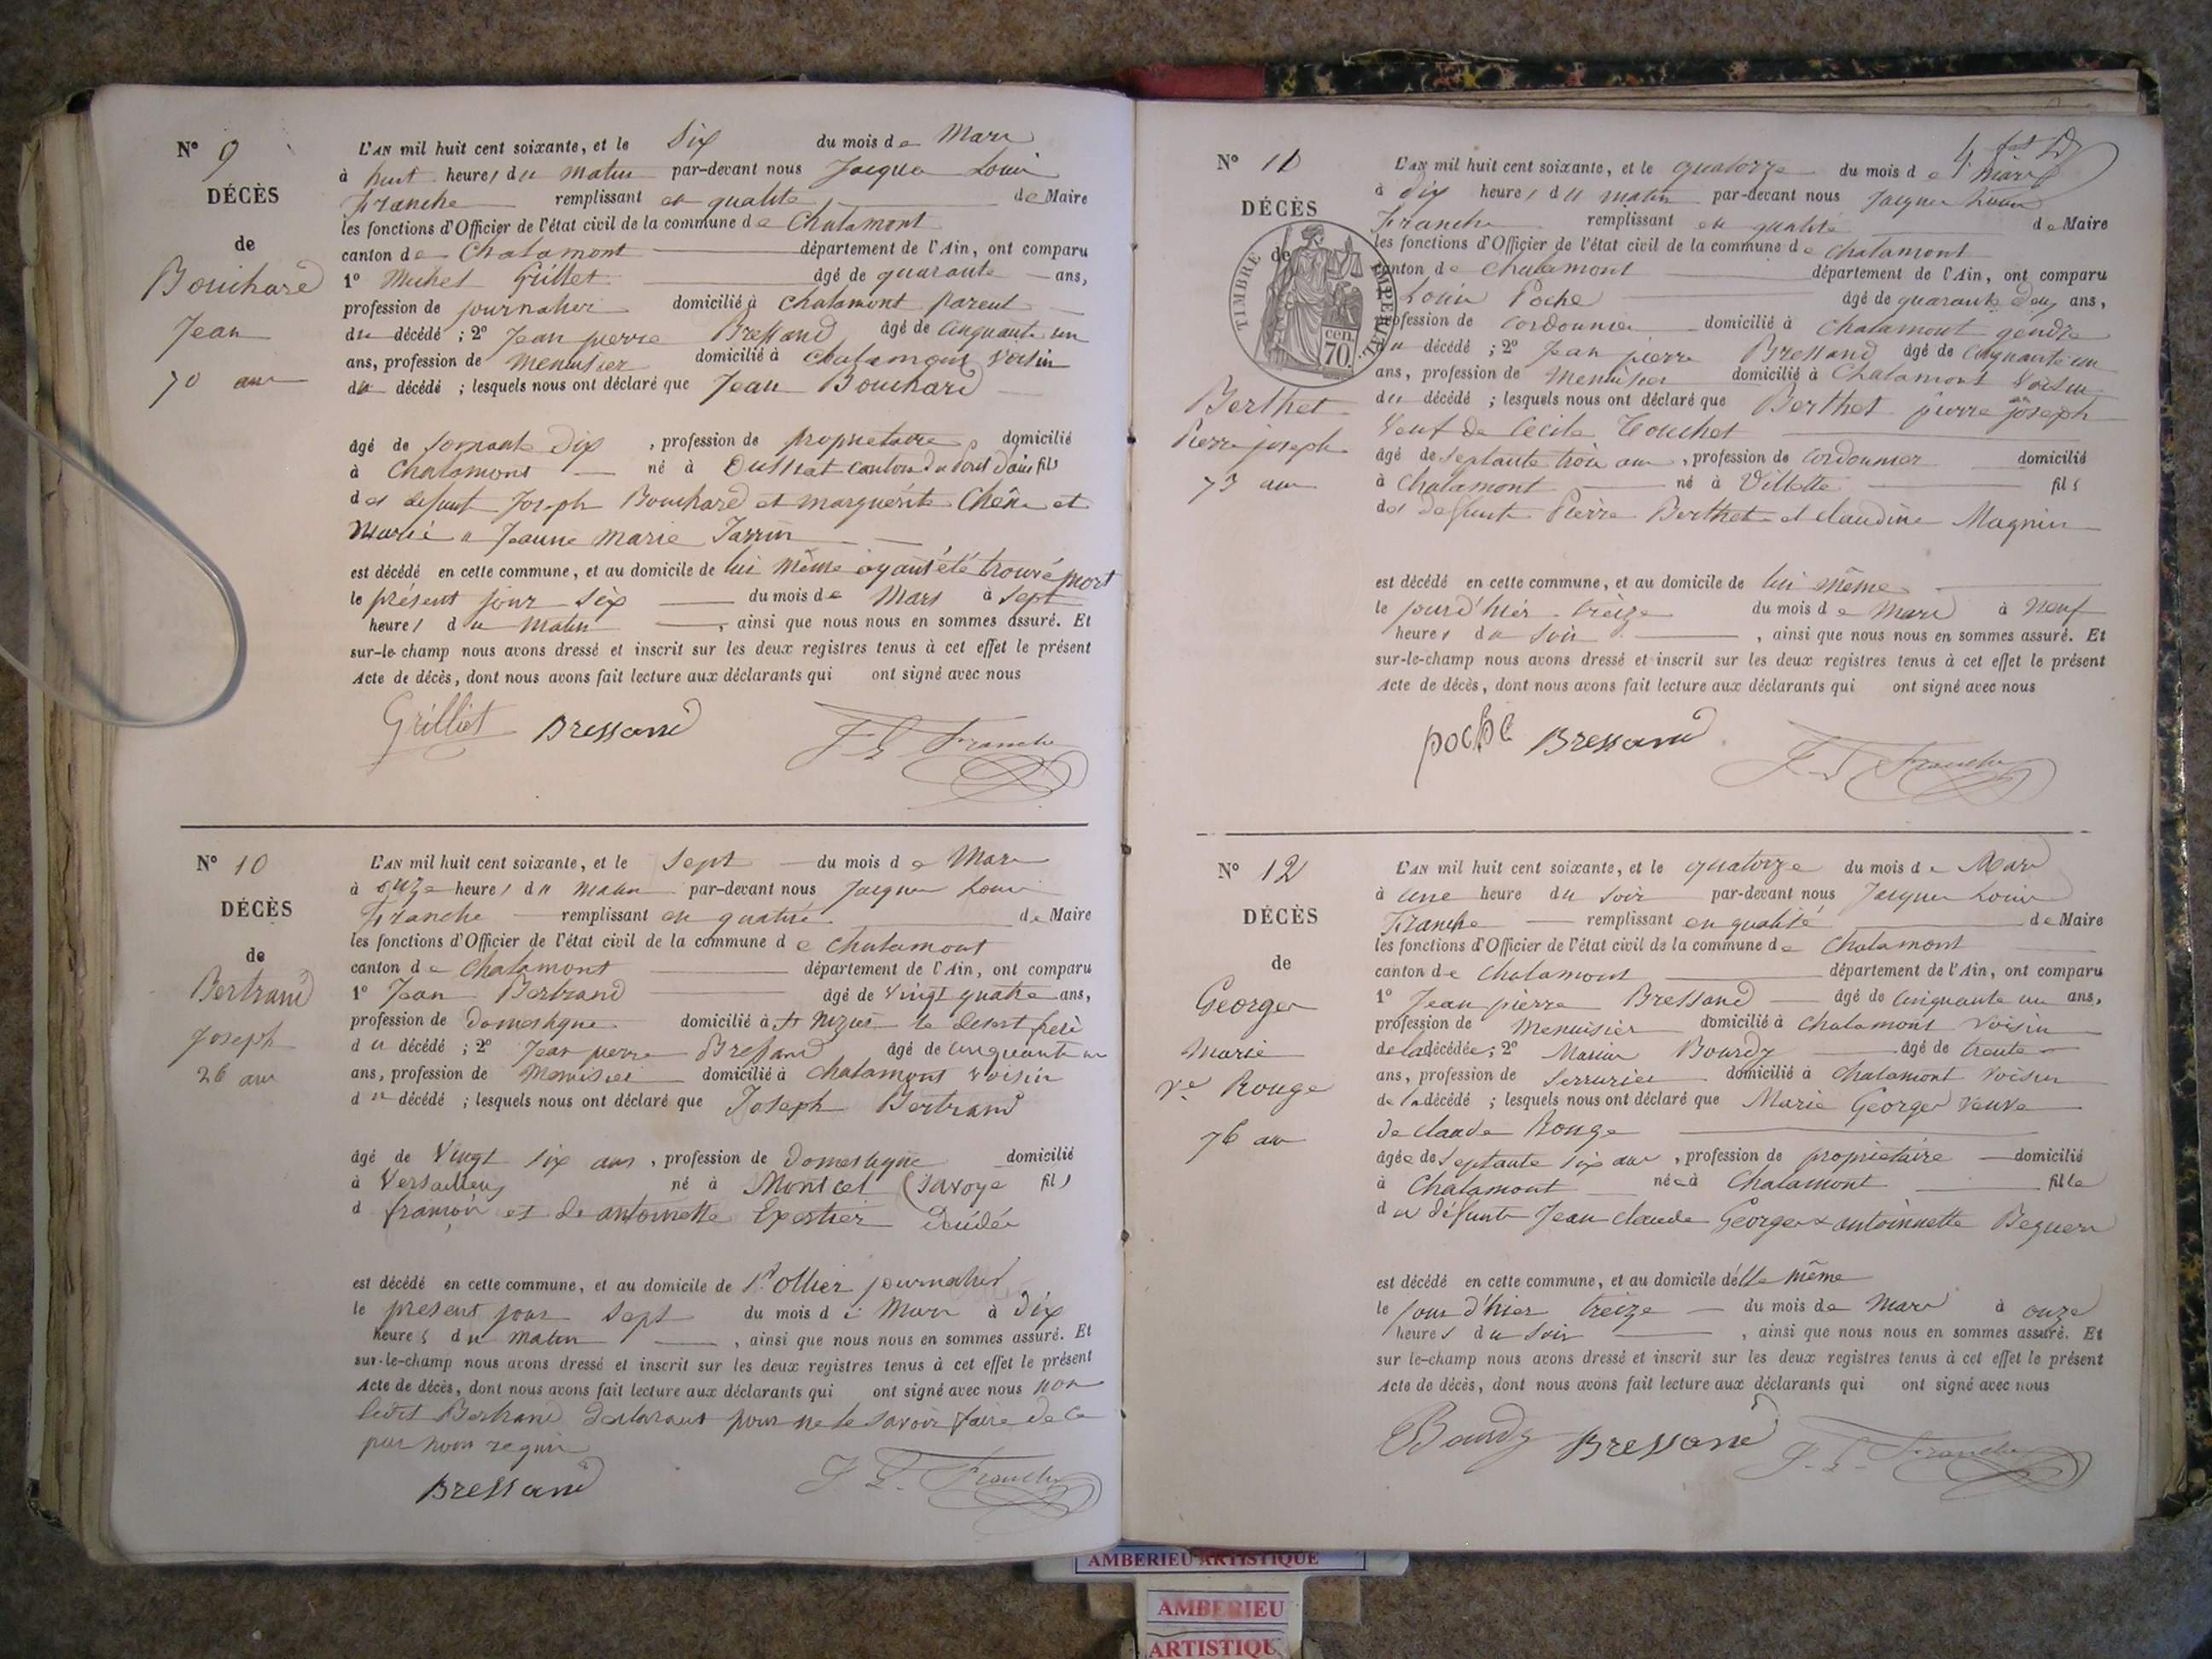 N° 9
DÉCÈS
de
Bouchard
Jean
70 ans
L'AN mil huit cent soixante, et le Six du mois de Mars
à huit heures du matin par-devant nous Jacques Louis
Franche remplissant en qualité de Maire
les fonctions d'Officier de l'état civil de la commune de Chalamont
canton de Chalamont département de l'Ain, ont comparu
1° Michel Grillet âgé de quarante ans,
profession de journalier domicilié à Chalamont parent
du décédé ; 2° Jean pierre Bressand âgé de cinquante un
ans, profession de Menuisier domicilié à Chalamont voisin
du décédé ; lesquels nous ont déclaré que Jean Bouchard
âgé de soixante Dix , profession de propriétaire domicilié
à Chalamont né à Druillat canton du Pont d'ain fils
des defunt Joseph Bouchard et marguerite Chêne et
Marié a Jeanne Marie
est décédé en cette commune, et au domicile de lui même ayant été trouvé mort
le présent jour six du mois de Mars à Sept
heures du Matin , ainsi que nous nous en sommes assuré. Et
sur-le-champ nous avons dressé et inscrit sur les deux registres tenus à cet effet le présent
Acte de décès, dont nous avons fait lecture aux déclarants qui ont signé avec nous
Grilliet Bressand J L Franche
N° 10
DÉCÈS
de
Bertrand
Joseph
26 ans
L'AN mil huit cent soixante, et le Sept du mois de Mars
à onze heures du matin par-devant nous Jacques Louis
Franche remplissant en qualité de Maire
les fonctions d'Officier de l'état civil de la commune de Chalamont
canton de Chalamont département de l'Ain, ont comparu
1° Jean Bertrand âgé de vingt quatre ans,
profession de Domestique domicilié à St Nizier le desert frère
du décédé ; 2° Jean pierre Bressand âgé de cinquante un
ans, profession de Menuisier domicilié à Chalamont voisin
du décédé ; lesquels nous ont déclaré que Joseph Bertrand
âgé de Vingt six ans , profession de Domestique domicilié
à Versailleux né à Montcel (Savoye fils
d françois et de antoinette Expertier
est décédé en cette commune, et au domicile de Ollier journalier
le présent jour Sept du mois de Mars à Dix
heures du Matin , ainsi que nous nous en sommes assuré. Et
sur-le-champ nous avons dressé et inscrit sur les deux registres tenus à cet effet le présent
Acte de décès, dont nous avons fait lecture aux déclarants qui ont signé avec nous non
ledit Bertrand declarant pour ne le savoir faire de ce
par nous requis
Bressand J L. Franche
N° 11
DÉCÈS
de
TIMBRE IMPÉRIAL
70 cen
Berthet
Pierre joseph
73 ans
L'AN mil huit cent soixante, et le quatorze du mois de Mars
à Dix heures du matin par-devant nous Jacques Louis
Franche remplissant en qualité de Maire
les fonctions d'Officier de l'état civil de la commune de Chalamont
canton de Chalamont département de l'Ain, ont comparu
1° Louis Poche âgé de quarante deux ans,
profession de cordonnier domicilié à Chalamont gendre
du décédé ; 2° Jean pierre Bressand âgé de cinquante un
ans, profession de Menuisier domicilié à Chalamont voisin
du décédé ; lesquels nous ont déclaré que Berthet pierre joseph
Veuf de Cécile Touchet
âgé de septante trois ans , profession de cordonnier domicilié
à Chalamont né à Villette fils
des défunts Pierre Berthet et claudine Magnin
est décédé en cette commune, et au domicile de lui même
le jour d'hier treize du mois de Mars à neuf
heures du Soir , ainsi que nous nous en sommes assuré. Et
sur-le-champ nous avons dressé et inscrit sur les deux registres tenus à cet effet le présent
Acte de décès, dont nous avons fait lecture aux déclarants qui ont signé avec nous
poche Bressand J L Franche
N° 12
DÉCÈS
de
Georges
Marie
Ve Rouge
76 ans
L'AN mil huit cent soixante, et le quatorze du mois de Mars
à une heure du soir par-devant nous Jacques Louis
Franche remplissant en qualité de Maire
les fonctions d'Officier de l'état civil de la commune de Chalamont
canton de Chalamont département de l'Ain, ont comparu
1° Jean pierre Bressand âgé de cinquante un ans,
profession de Menuisier domicilié à Chalamont voisin
de la décédée ; 2° Marius Bourdy âgé de trente
ans, profession de Serrurier domicilié à Chalamont voisin
de la décédé ; lesquels nous ont déclaré que Marie Georges veuve
de claude Rouge
âgée de septante six ans , profession de propriétaire domicilié
à Chalamont née à Chalamont fille
des défunts Jean claude Georges & antoinnette
est décédé en cette commune, et au domicile d'elle même
le jour d'hier treize du mois de Mars à onze
heures du soir , ainsi que nous nous en sommes assuré. Et
sur le-champ nous avons dressé et inscrit sur les deux registres tenus à cet effet le présent
Acte de décès, dont nous avons fait lecture aux déclarants qui ont signé avec nous
Bourdy Bressand J. L. Franche
AMBERIEU ARTISTIQUE
AMBERIEU
ARTISTIQUE